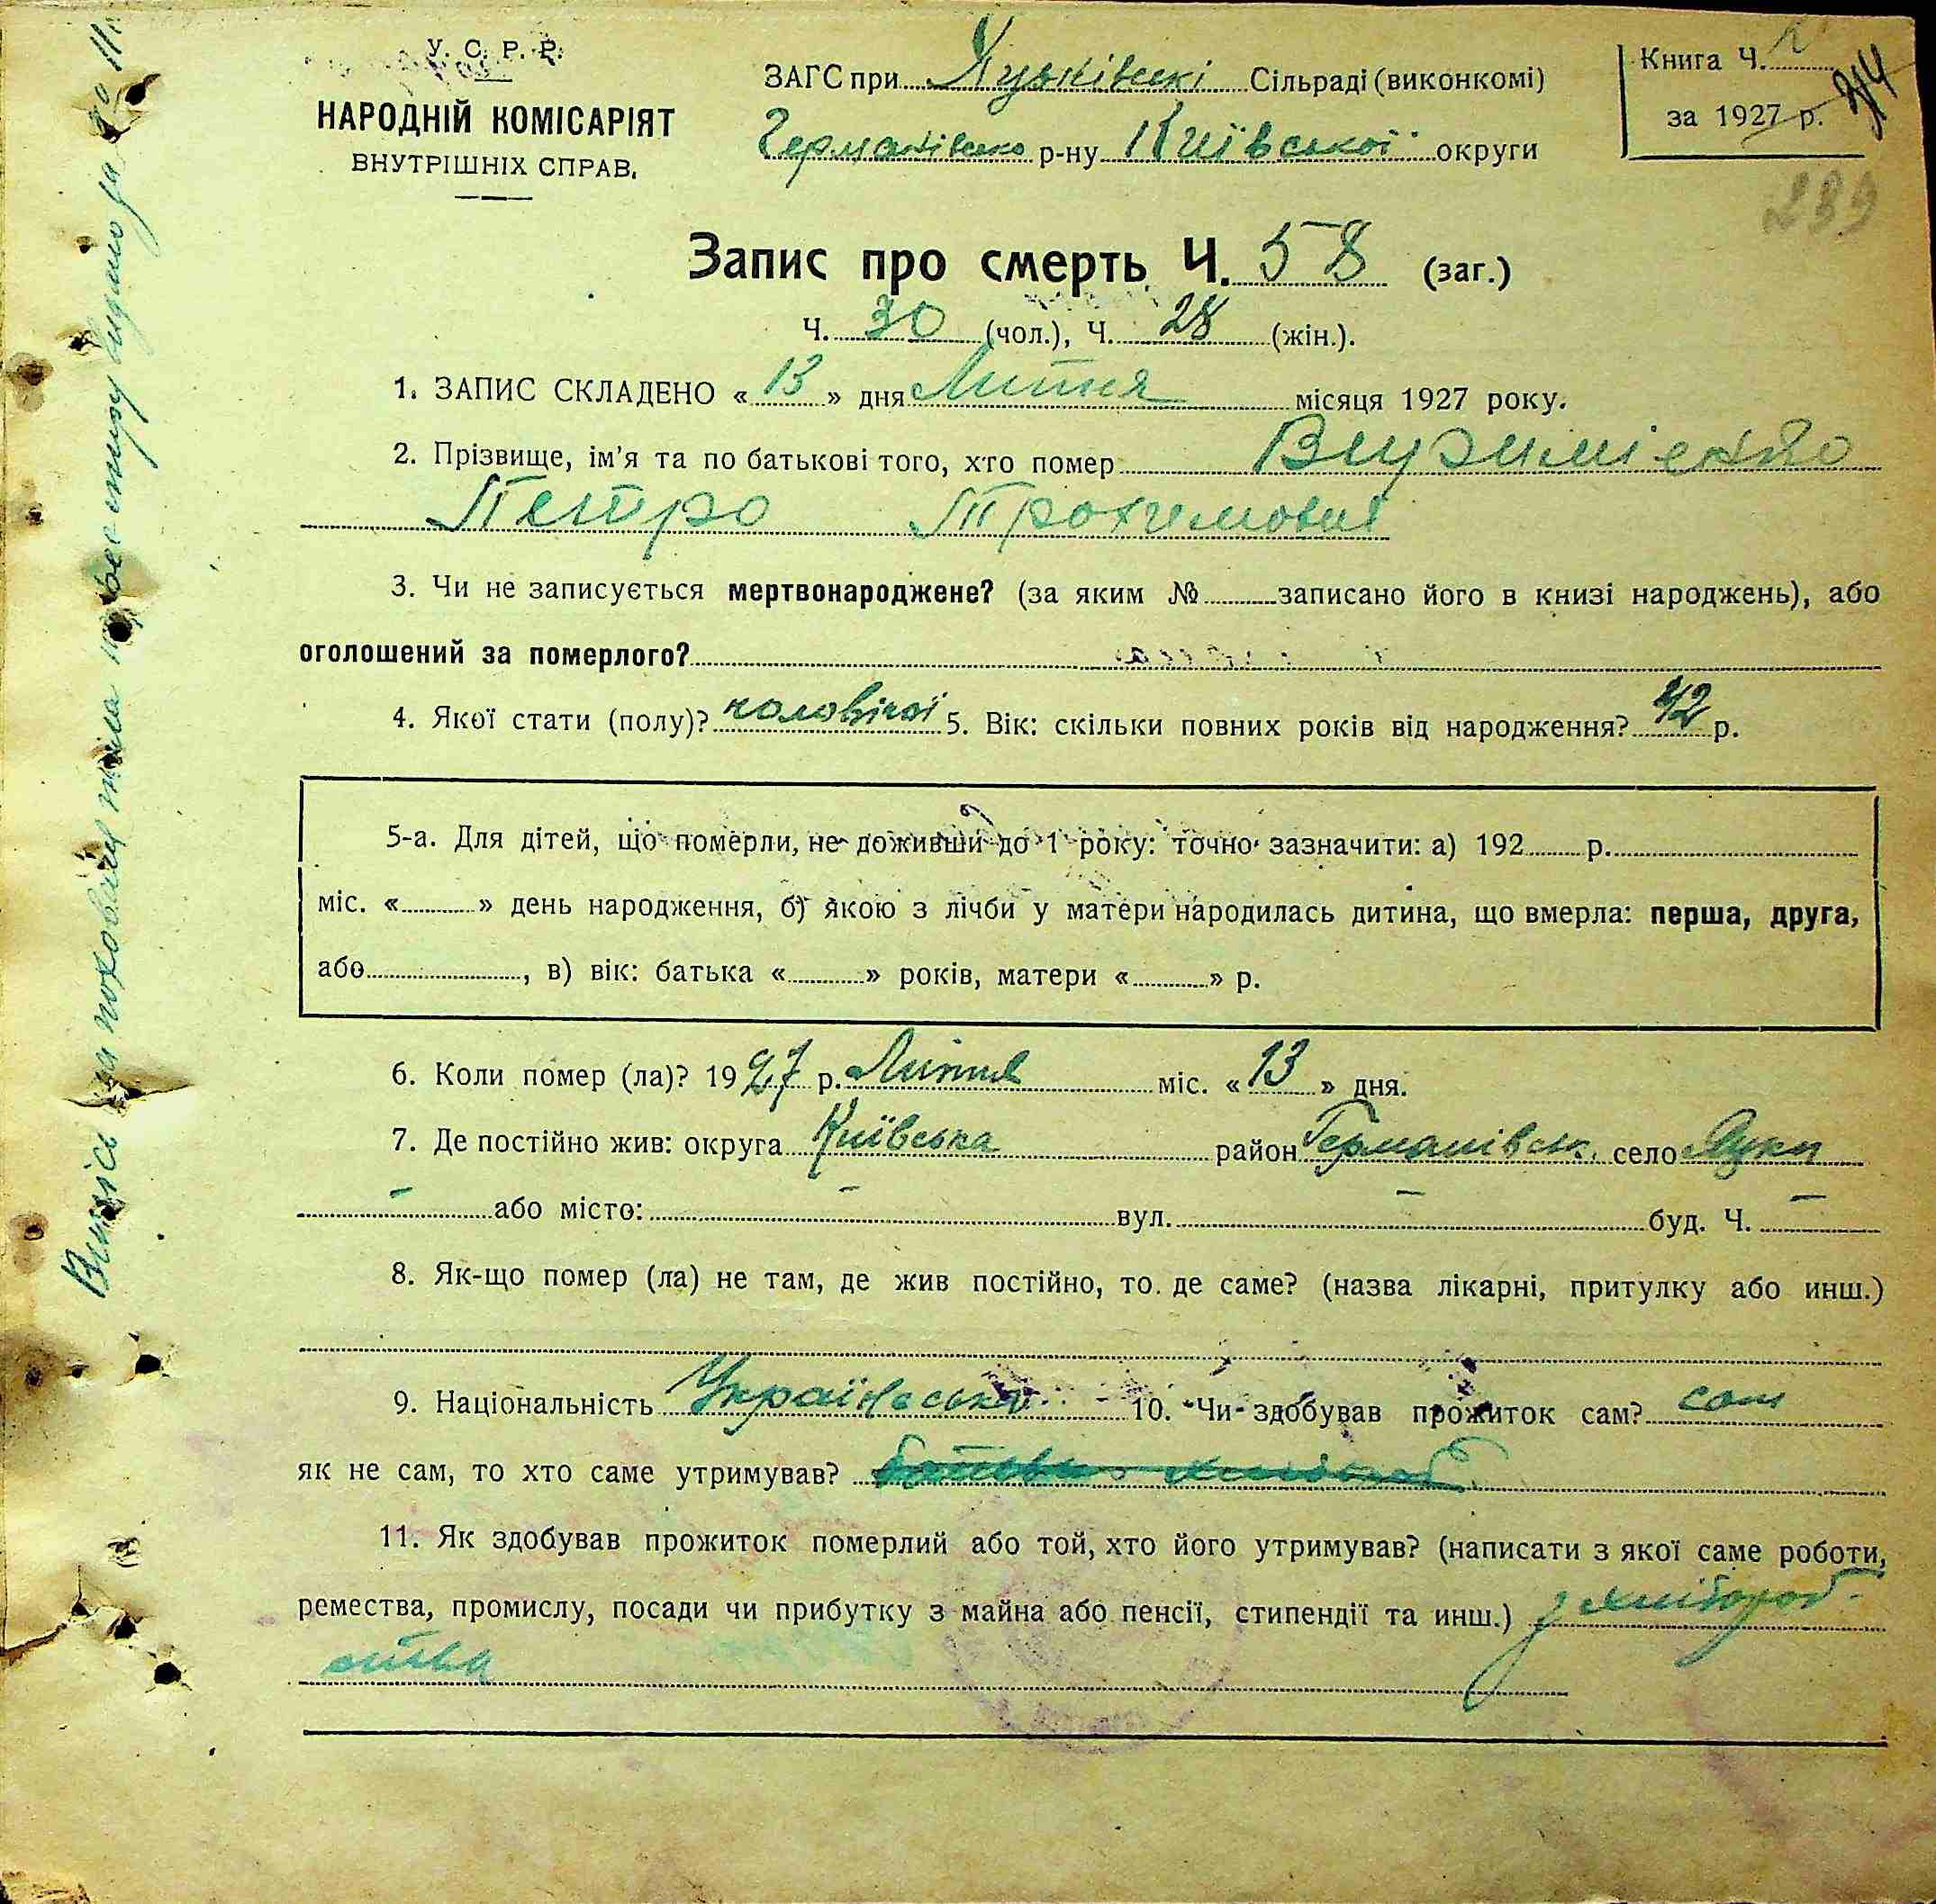 У. С. Р. Р.
НАРОДНІЙ КОМІСАРІЯТ
ВНУТРІШНІХ СПРАВ.
ЗАГС при Сільраді (виконкомі)
р-ну Київської округи
Книга Ч.
за 1927 р.
289
Запис про смерть Ч. 58 (заг.)
Ч. 30 (чол.), Ч. 28 (жін.).
1. ЗАПИС СКЛАДЕНО « 13 » дня Липня місяця 1927 року.
2. Прізвище, ім'я та по батькові того, хто помер
Петро Трохимович
3. Чи не записується мертвонароджене? (за яким № записано його в книзі народжень), або
оголошений за померлого?
4. Якої стати (полу)? чоловічої 5. Вік: скільки повних років від народження? 42 р.
5-а. Для дітей, що померли, не доживши до 1 року: точно зазначити: а) 192 р.
міс. « » день народження, б) якою з лічби у матери народилась дитина, що вмерла: перша, друга,
або , в) вік: батька « » років, матери « » р.
6. Коли помер (ла)? 1927 р. Липня міс. « 13 » дня.
7. Де постійно жив: округа Київська район Германівськ. село
або місто: вул. буд. Ч.
8. Як-що помер (ла) не там, де жив постійно, то де саме? (назва лікарні, притулку або инш.)
9. Національність Українська 10. Чи здобував прожиток сам? сам
як не сам, то хто саме утримував?
11. Як здобував прожиток померлий або той, хто його утримував? (написати з якої саме роботи,
ремества, промислу, посади чи прибутку з майна або пенсії, стипендії та инш.) з хлібороб-
ства